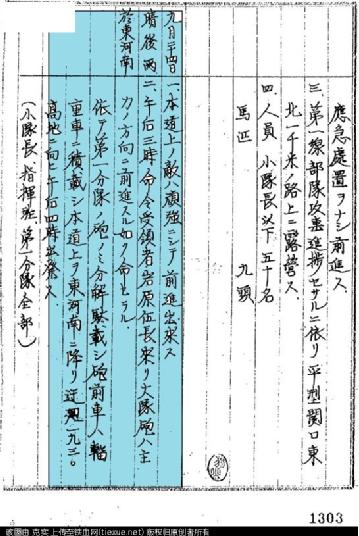 應急處置ヲナシ前進ス
三、第一線部隊攻惠進捗セサルニ依リ平型関口東
北一千米ノ路上ニ露営ス
四、人員 小隊長以下 五十名
馬匹 九頭
九月二十四日
晴後雨
於東河南
一、本道上ノ敵ハ頑強ニシテ前進出来ス
二、午后三時命令受領者岩原伍長来リ大隊砲ハ主
力ノ方向ニ前進スル如ク命セラル
依テ第一分隊ノ砲ノミ分解駄載シ砲前車ハ輜
重車ニ積載シ本道上ヲ東河南ニ降リ迂廻一九三〇
高地ニ向ヒ午后四時出発ス
(小隊長、指揮班、第一分隊全部)
1303
截图由 克实上传至铁血网(tiexue.net) 版权归原创者所有